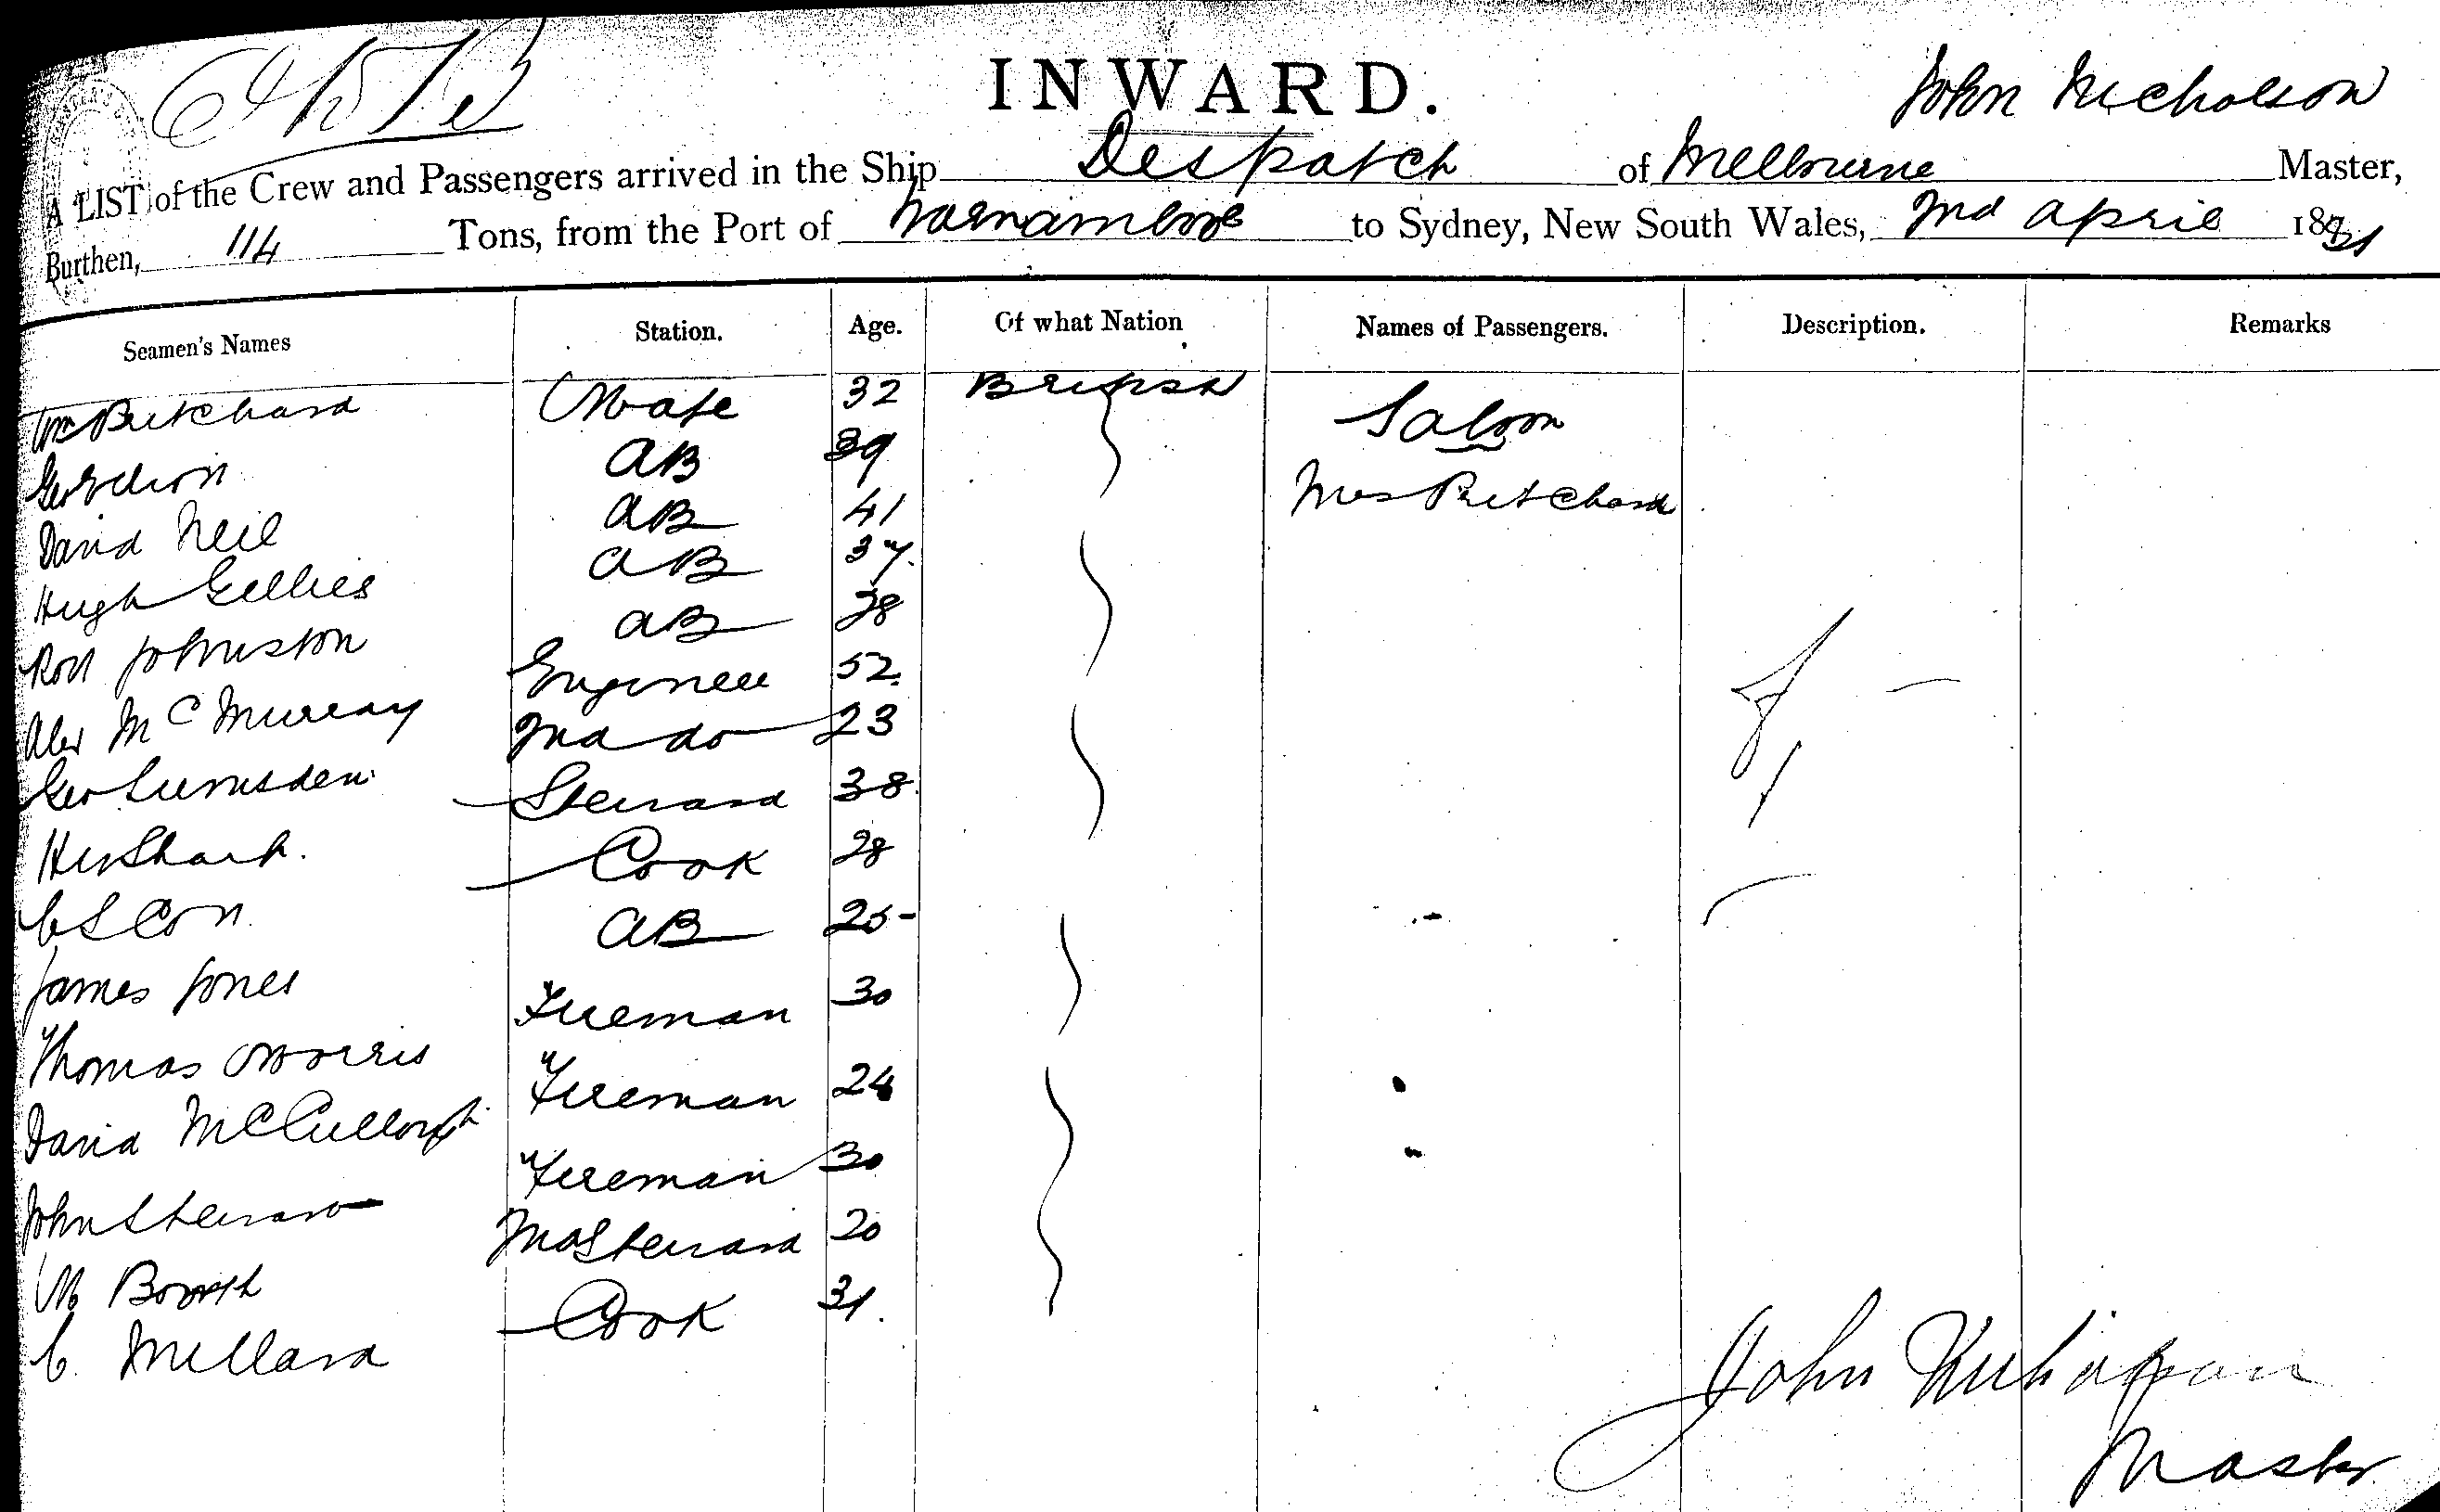 INWARD.
John Nicholson
A LIST of the Crew and Passengers arrived in the Ship Despatch of Melbourne Master,
Burthen, 114 Tons, from the Port of to Sydney, New South Wales, 2nd April 18
Seamen's Names Station. Age. Of what Nation Names of Passengers. Description. Remarks
Wm Pritchard Mate 32 British Saloon
Geo AB 39 Mrs Pritchard
David Neil AB 41
Hugh Gillies AB 37.
Robt Johnston AB 28
Alex McMurray Engineer 52.
Geo Lumsden 2nd do 23
Hy Sharp. Steward 38
C S Con Cook 28
James Jones AB 25
Thomas Morris Fireman 30
David McCullough Fireman 24
John Steward Fireman 30
M Booth 2nd Steward 20
C. Millard Cook 31.
John Nicholson
Master